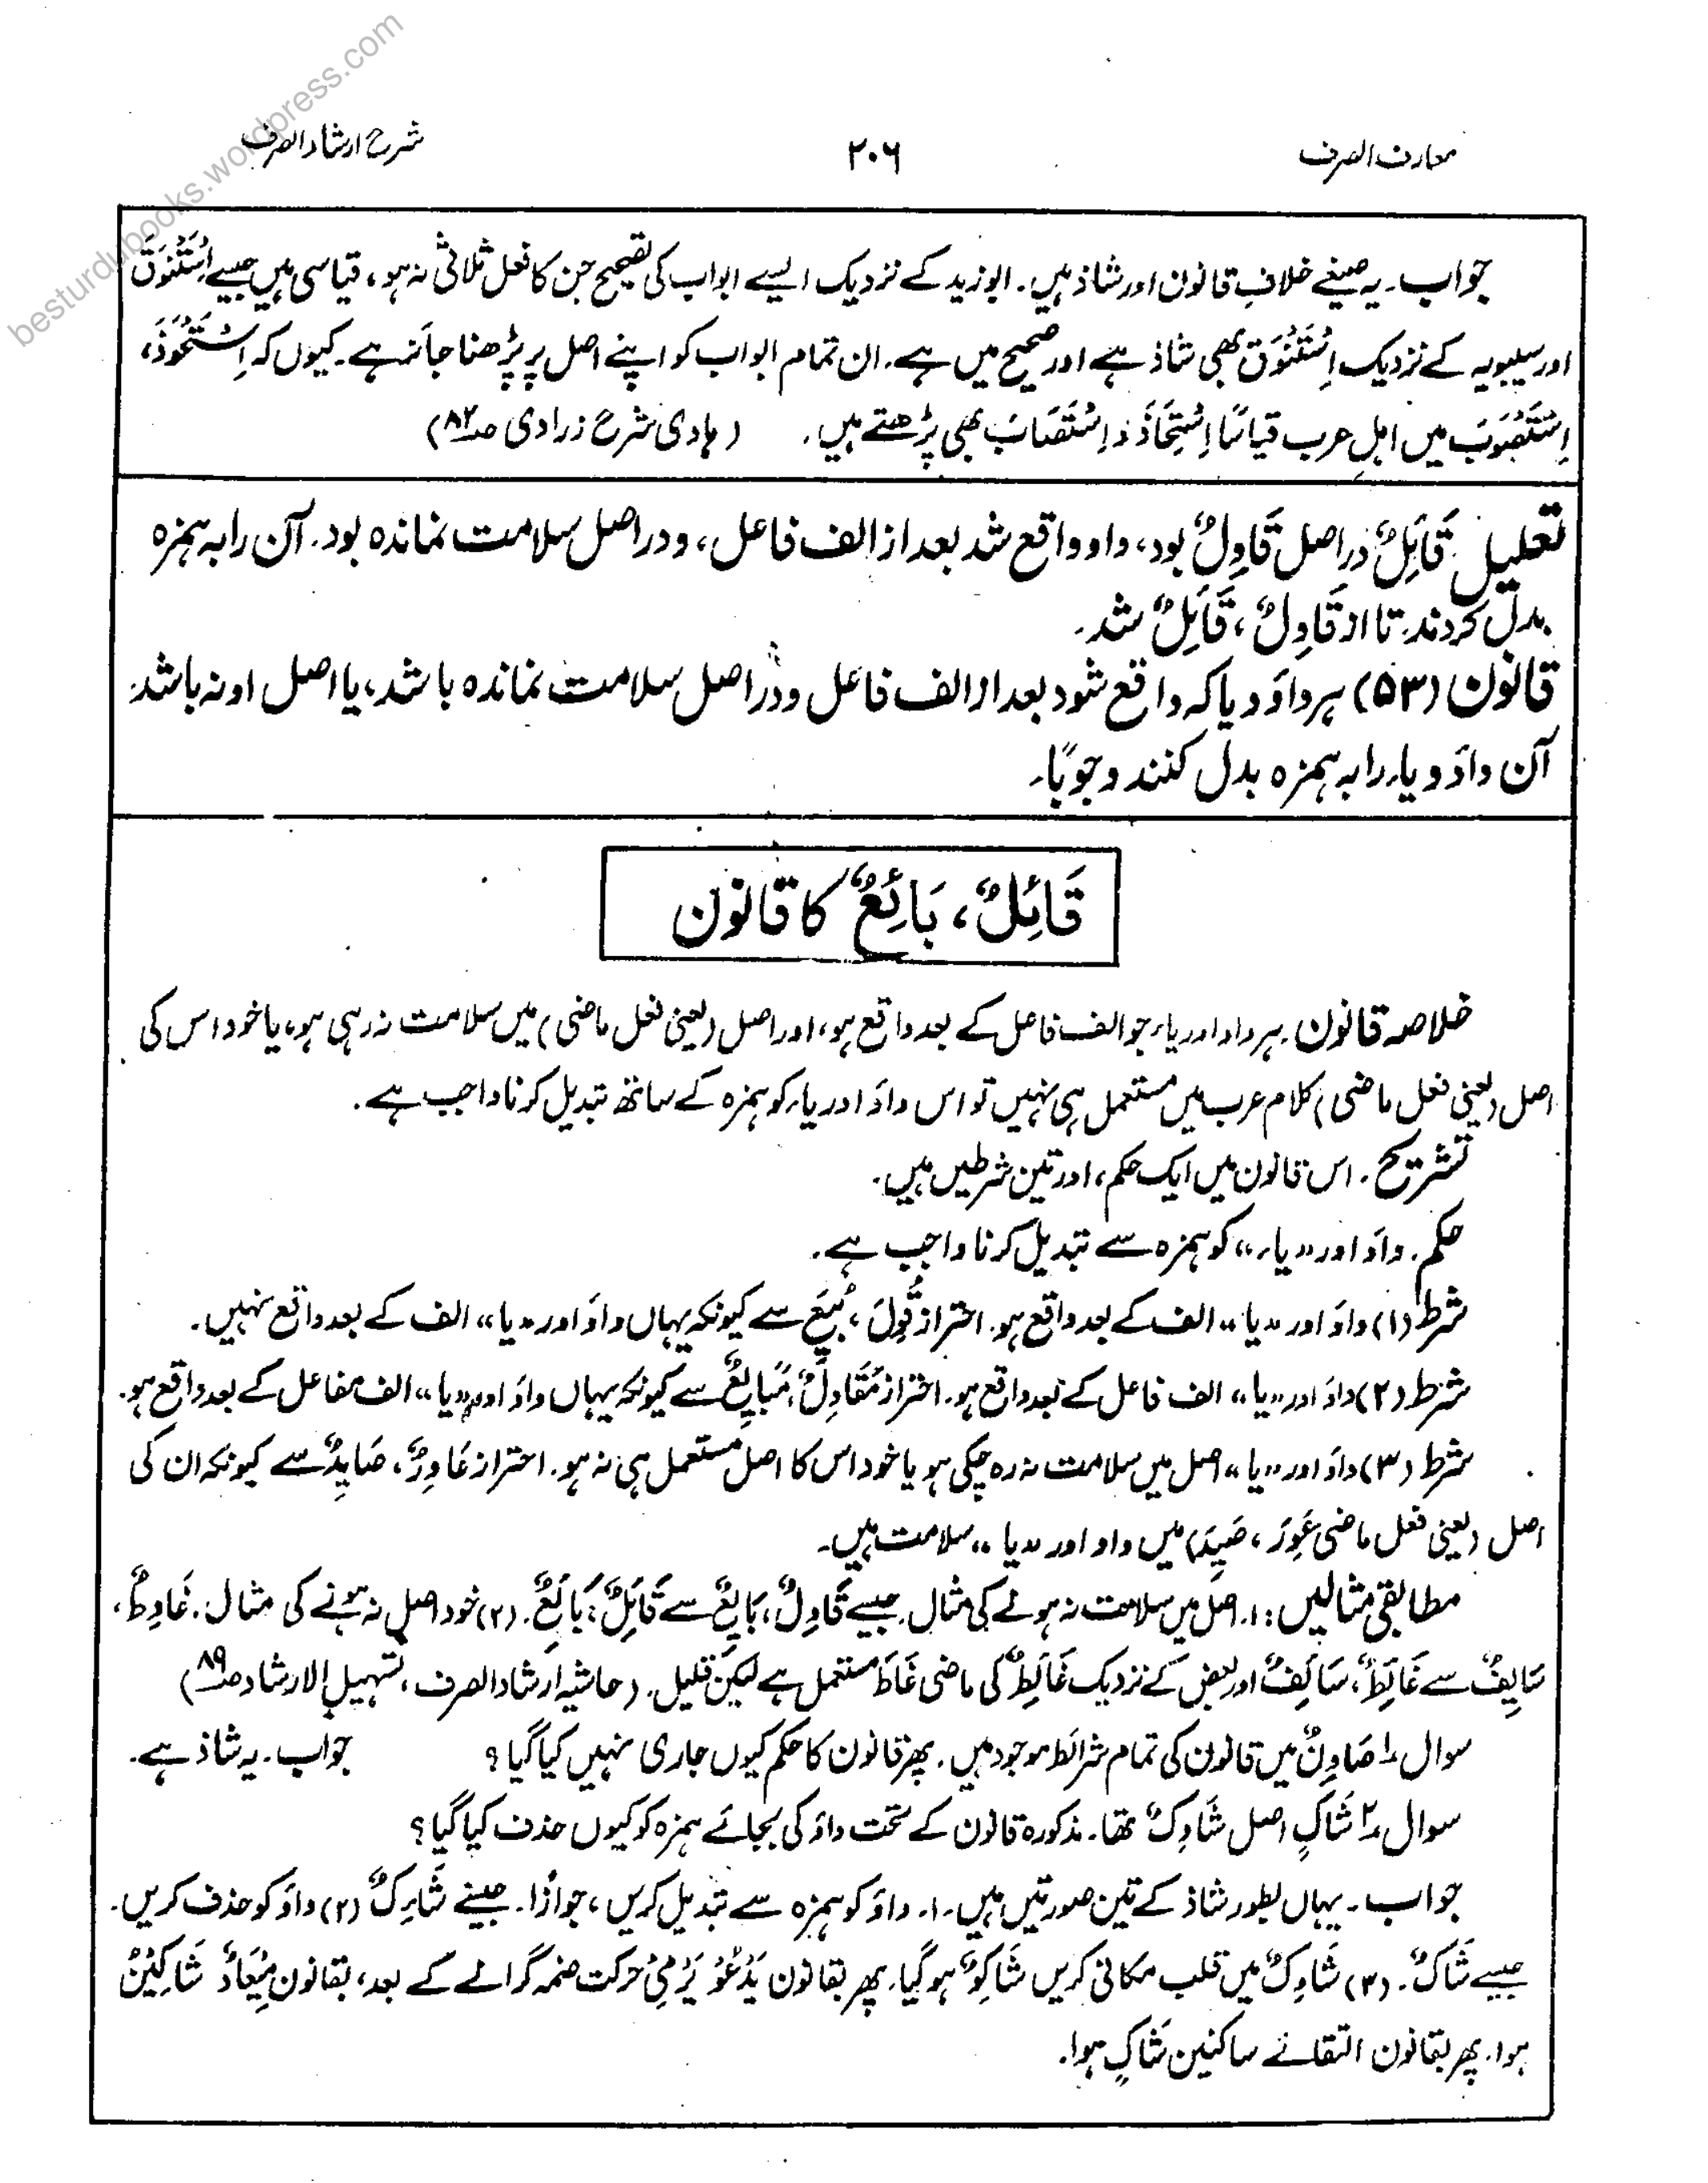 besturdubooks.wordpress.com
معارف الصرف ۲۰۶ شرح ارشاد الصرف
جواب۔ یہ صیغے خلافِ قانون اور شاذ ہیں۔ ابوزید کے نزدیک ایسے ابواب کی تصحیح جن کا فعل ثلاثی نہ ہو، قیاسی ہیں جیسے اِسْتَنْوَقَ
اور سیبویہ کے نزدیک اِسْتَنْوَقَ بھی شاذ ہے اور صحیح میں ہے۔ ان تمام ابواب کو اپنے اصل پر پڑھنا جائز ہے۔ کیوں کہ اِسْتَحْوَذَ،
اِسْتَصْوَبَ میں اہلِ عرب قیاسًا اِسْتَحَاذَ وَ اِسْتَصَابَ بھی پڑھتے ہیں۔ (ہادی شرح زرادی صـ۸۲)
تعلیل قَائِلٌ دراصل قَاوِلٌ بود، واو واقع شد بعد از الف فاعل، و در اصل سلامت نماندہ بود۔ آن را بہ ہمزہ
بدل کردند تا از قَاوِلٌ، قَائِلٌ شد۔
قانون (۵۳) ہر واؤ و یا کہ واقع شود بعد از الف فاعل و در اصل سلامت نماندہ باشد، یا اصل او نہ باشد
آن واؤ و یاء را بہ ہمزہ بدل کنند وجوبًا۔
قَائِلٌ، بَائِعٌ کا قانون
خلاصہ قانون۔ ہر واؤ اور یاء جو الف فاعل کے بعد واقع ہو، اور اصل (یعنی فعل ماضی) میں سلامت نہ رہی ہو، یا خود اس کی
اصل (یعنی فعل ماضی) کلام عرب میں مستعمل ہی نہیں تو اس واؤ اور یاء کو ہمزہ کے ساتھ تبدیل کرنا واجب ہے۔
تشریح۔ اس قانون میں ایک حکم، اور تین شرطیں ہیں۔
حکم۔ واؤ اور ”یاء“ کو ہمزہ سے تبدیل کرنا واجب ہے۔
شرط (۱) واؤ اور ”یا“ الف کے بعد واقع ہو۔ احتراز قُوِلَ، بُیِعَ سے کیونکہ یہاں واؤ اور ”یا“ الف کے بعد واقع نہیں۔
شرط (۲) واؤ اور ”یا“ الف فاعل کے بعد واقع ہو۔ احتراز مَقَاوِلُ، مَبَایِعُ سے کیونکہ یہاں واؤ اور ”یا“ الف مفاعل کے بعد واقع ہو۔
شرط (۳) واؤ اور ”یا“ اصل میں سلامت نہ رہ چکی ہو یا خود اس کا اصل مستعمل ہی نہ ہو۔ احتراز عَاوِرٌ، صَایِدٌ سے کیونکہ ان کی
اصل (یعنی فعل ماضی عَوِرَ، صَیِدَ) میں واو اور ”یا“ سلامت ہیں۔
مطابقی مثالیں: ۱۔ اصل میں سلامت نہ ہونے کی مثال۔ جیسے قَاوِلٌ، بَایِعٌ سے قَائِلٌ، بَائِعٌ۔ (۲) خود اصل نہ ہونے کی مثال۔ غَاوِطٌ،
سَایِفٌ سے غَائِطٌ، سَائِفٌ اور بعض کے نزدیک غَائِطٌ کی ماضی غَاطَ مستعمل ہے لیکن قلیل۔ (حاشیہ ارشاد الصرف، تسہیل الارشاد صـ۸۹)
سوال ۱؎ صَاوِنٌ میں قانون کی تمام شرائط موجود ہیں۔ پھر قانون کا حکم کیوں جاری نہیں کیا گیا؟ جواب۔ یہ شاذ ہے۔
سوال ۲؎ شَاكٍ اصل شَاوِكٌ تھا۔ مذکورہ قانون کے تحت واؤ کی بجائے ہمزہ کو کیوں حذف کیا گیا؟
جواب۔ یہاں بطور شاذ کے تین صورتیں ہیں۔ ۱۔ واؤ کو ہمزہ سے تبدیل کریں، جوازًا۔ جیسے شَائِكٌ (۲) واؤ کو حذف کریں۔
جیسے شَاكٌ۔ (۳) شَاوِكٌ میں قلب مکانی کریں شَاكِوٌ ہوگیا۔ پھر بقانون یَدْعُوْ یَرْمِیْ حرکت ضمہ گرانے کے بعد، بقانون مِیْعَادٌ شَاكِیْنْ
ہوا۔ پھر بقانون التقائے ساکنین شَاكٍ ہوا۔